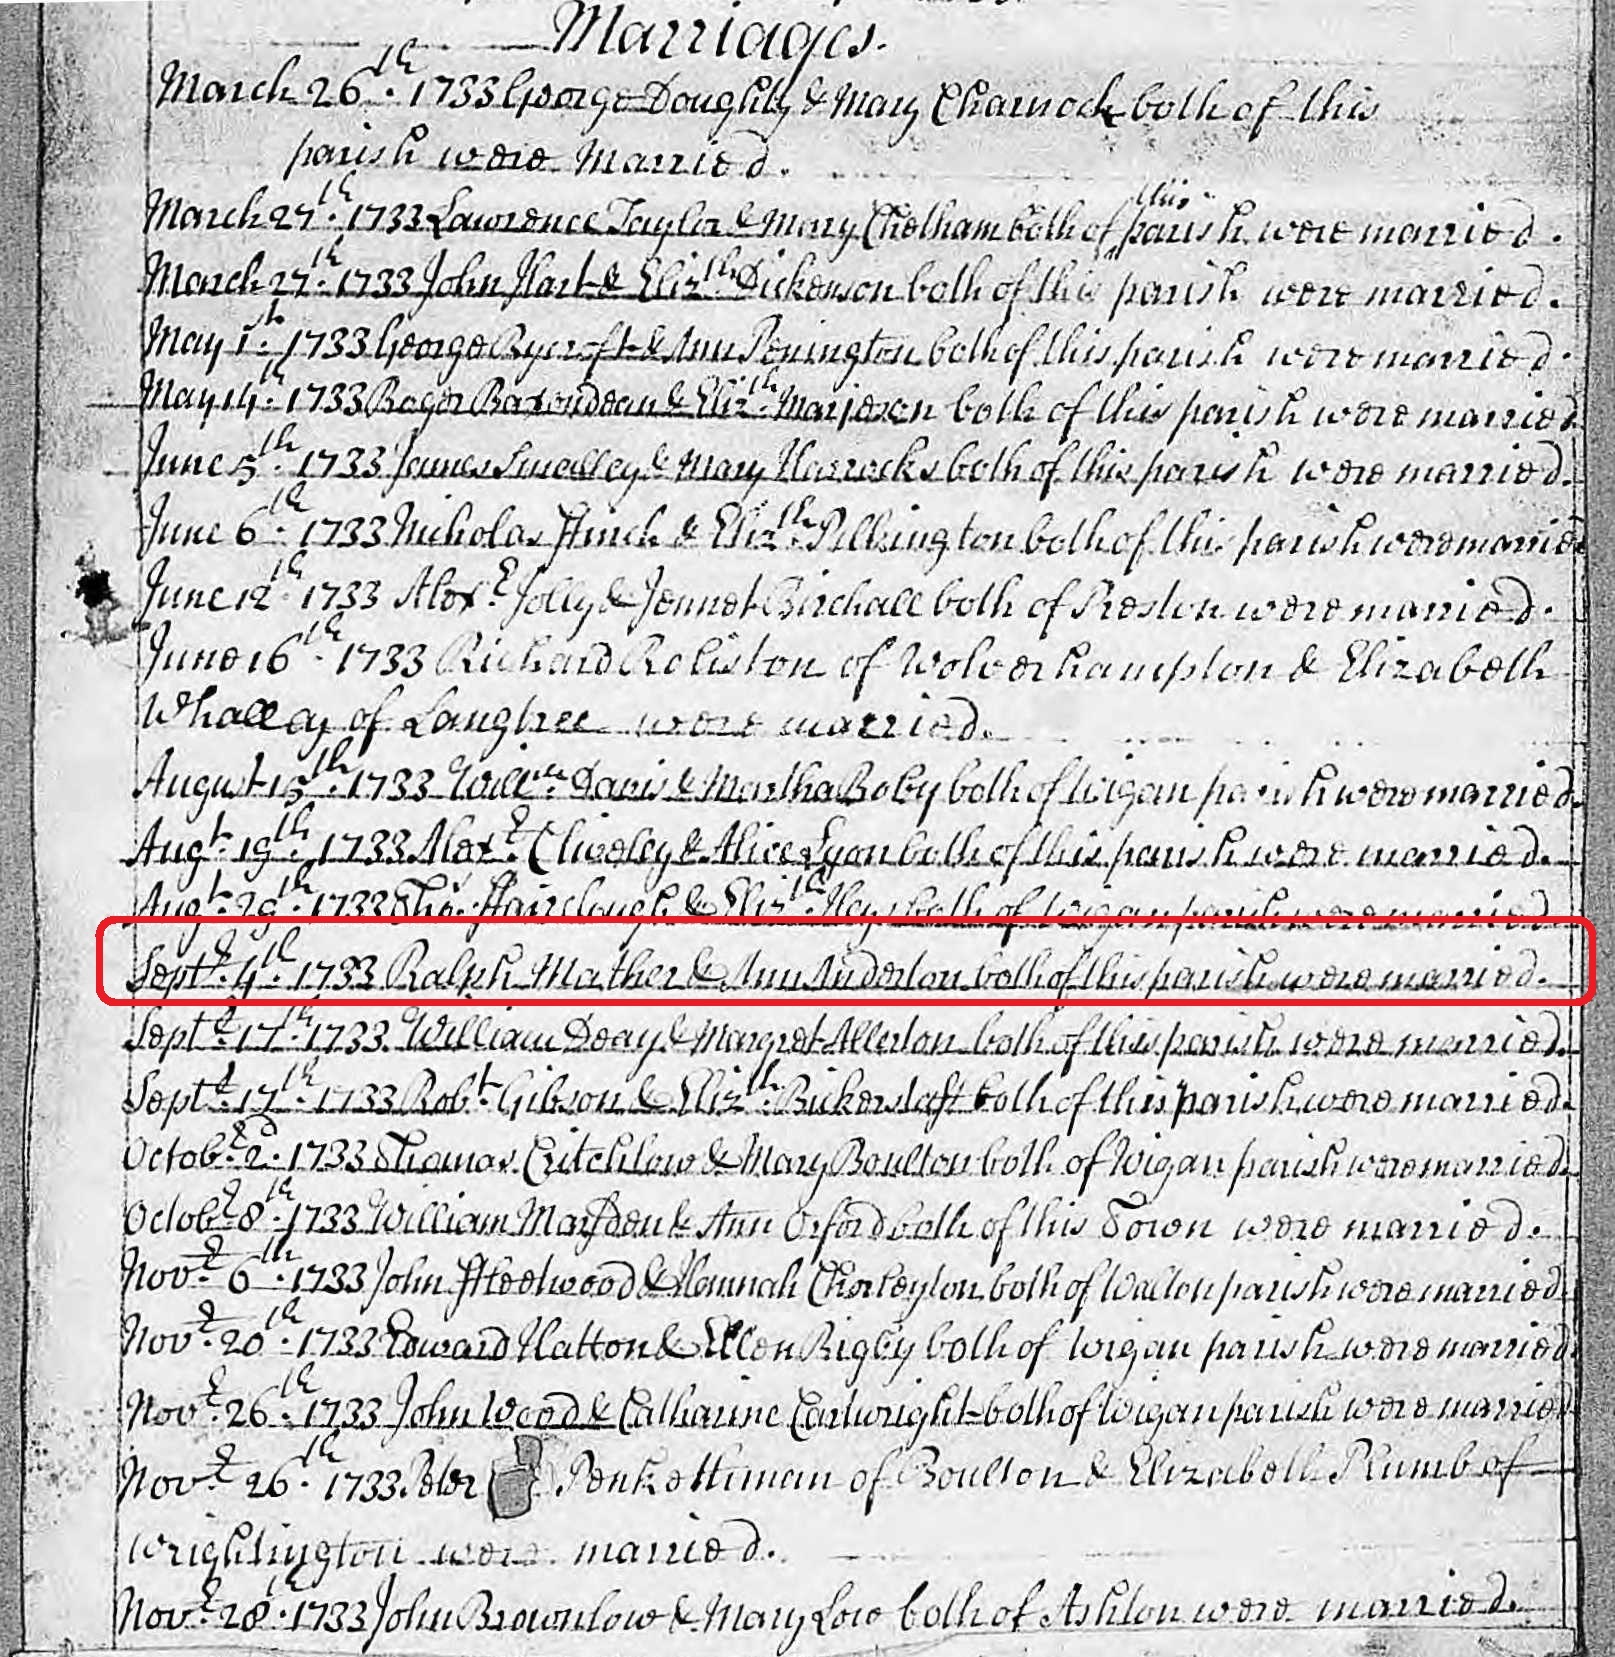 Marriages.
March 26th. 1733 George Doughty & Mary Charnock both of this
parish were Married.
March 27th. 1733 Lawrence Taylor & Mary Chetham both of this parish were married.
March 27th. 1733 John Hart & Elizth. Dickenson both of this parish were married.
May 1st. 1733 George Rycroft & Ann Penington both of this parish were married.
May 14th. 1733 Roger & Elizth. both of this parish were married
June 5th. 1733 James Smalley & Mary Horrocks both of this parish were married.
June 6th. 1733 Nicholas & Elizth. Pilkington both of this parish were married
June 12th. 1733 Alexr. Jolly & Jennet Birchall both of Preston were married.
June 16th. 1733 Richard Roliston of Wolverhampton & Elizabeth
Whalley of Langtree were married.
August 15th. 1733 Willm. Davis & Martha Boby both of Wigan parish were married.
Augt. 19th. 1733 Alexr. Cliveley & Alice Lyon both of this parish were married.
Augt. 29th. 1733 Tho. Fairclough & Elizth. Hey both of Wigan parish were married
Septr. 4th. 1733 Ralph Mather & Ann Anderton both of this parish were married.
Septr. 17th. 1733. William & Margret Allerton both of this parish were married.
Septr. 17th. 1733 Robt. Gibson & Elizth. Bickerstaff both of this parish were married.
Octobr. 2d. 1733 Thomas Critchlow & Mary Boulton both of Wigan parish were married.
Octobr. 8th. 1733 William Marsden & Ann Orford both of this Town were married.
Novr. 6th. 1733 John Fleetwood & Hannah Chorleyton both of Walton parish were married.
Novr. 20th. 1733 Edward Hatton & Ellen Rigby both of Wigan parish were married
Novr. 26th. 1733 John Wood & Catharine Cartwright both of Wigan parish were married
Novr. 26th. 1733. Peter Penkethman of Boulton & Elizabeth Plumb of
Wrightington were married.
Novr. 28th. 1733 John Brownlow & Mary Low both of Ashton were married.